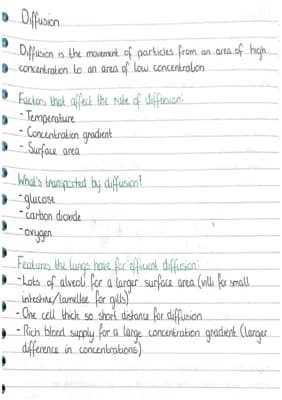 Diffusion
Diffusion is the movement of particles from an area of high
concentration to an area of low concentration
Factors that affect the rate of diffusion:
- Temperature
- Concentration gradient
- Surface area
What's transported by diffusion?
- glucose
- carbon dioxide
- oxygen
Features the lungs have for efficient diffusion:
- Lots of alveoli for a larger surface area (villi for small
intestine/lamellae for gills)
- One cell thick so short distance for diffusion
- Rich blood supply for a large concentration gradient (larger
difference in concentrations)